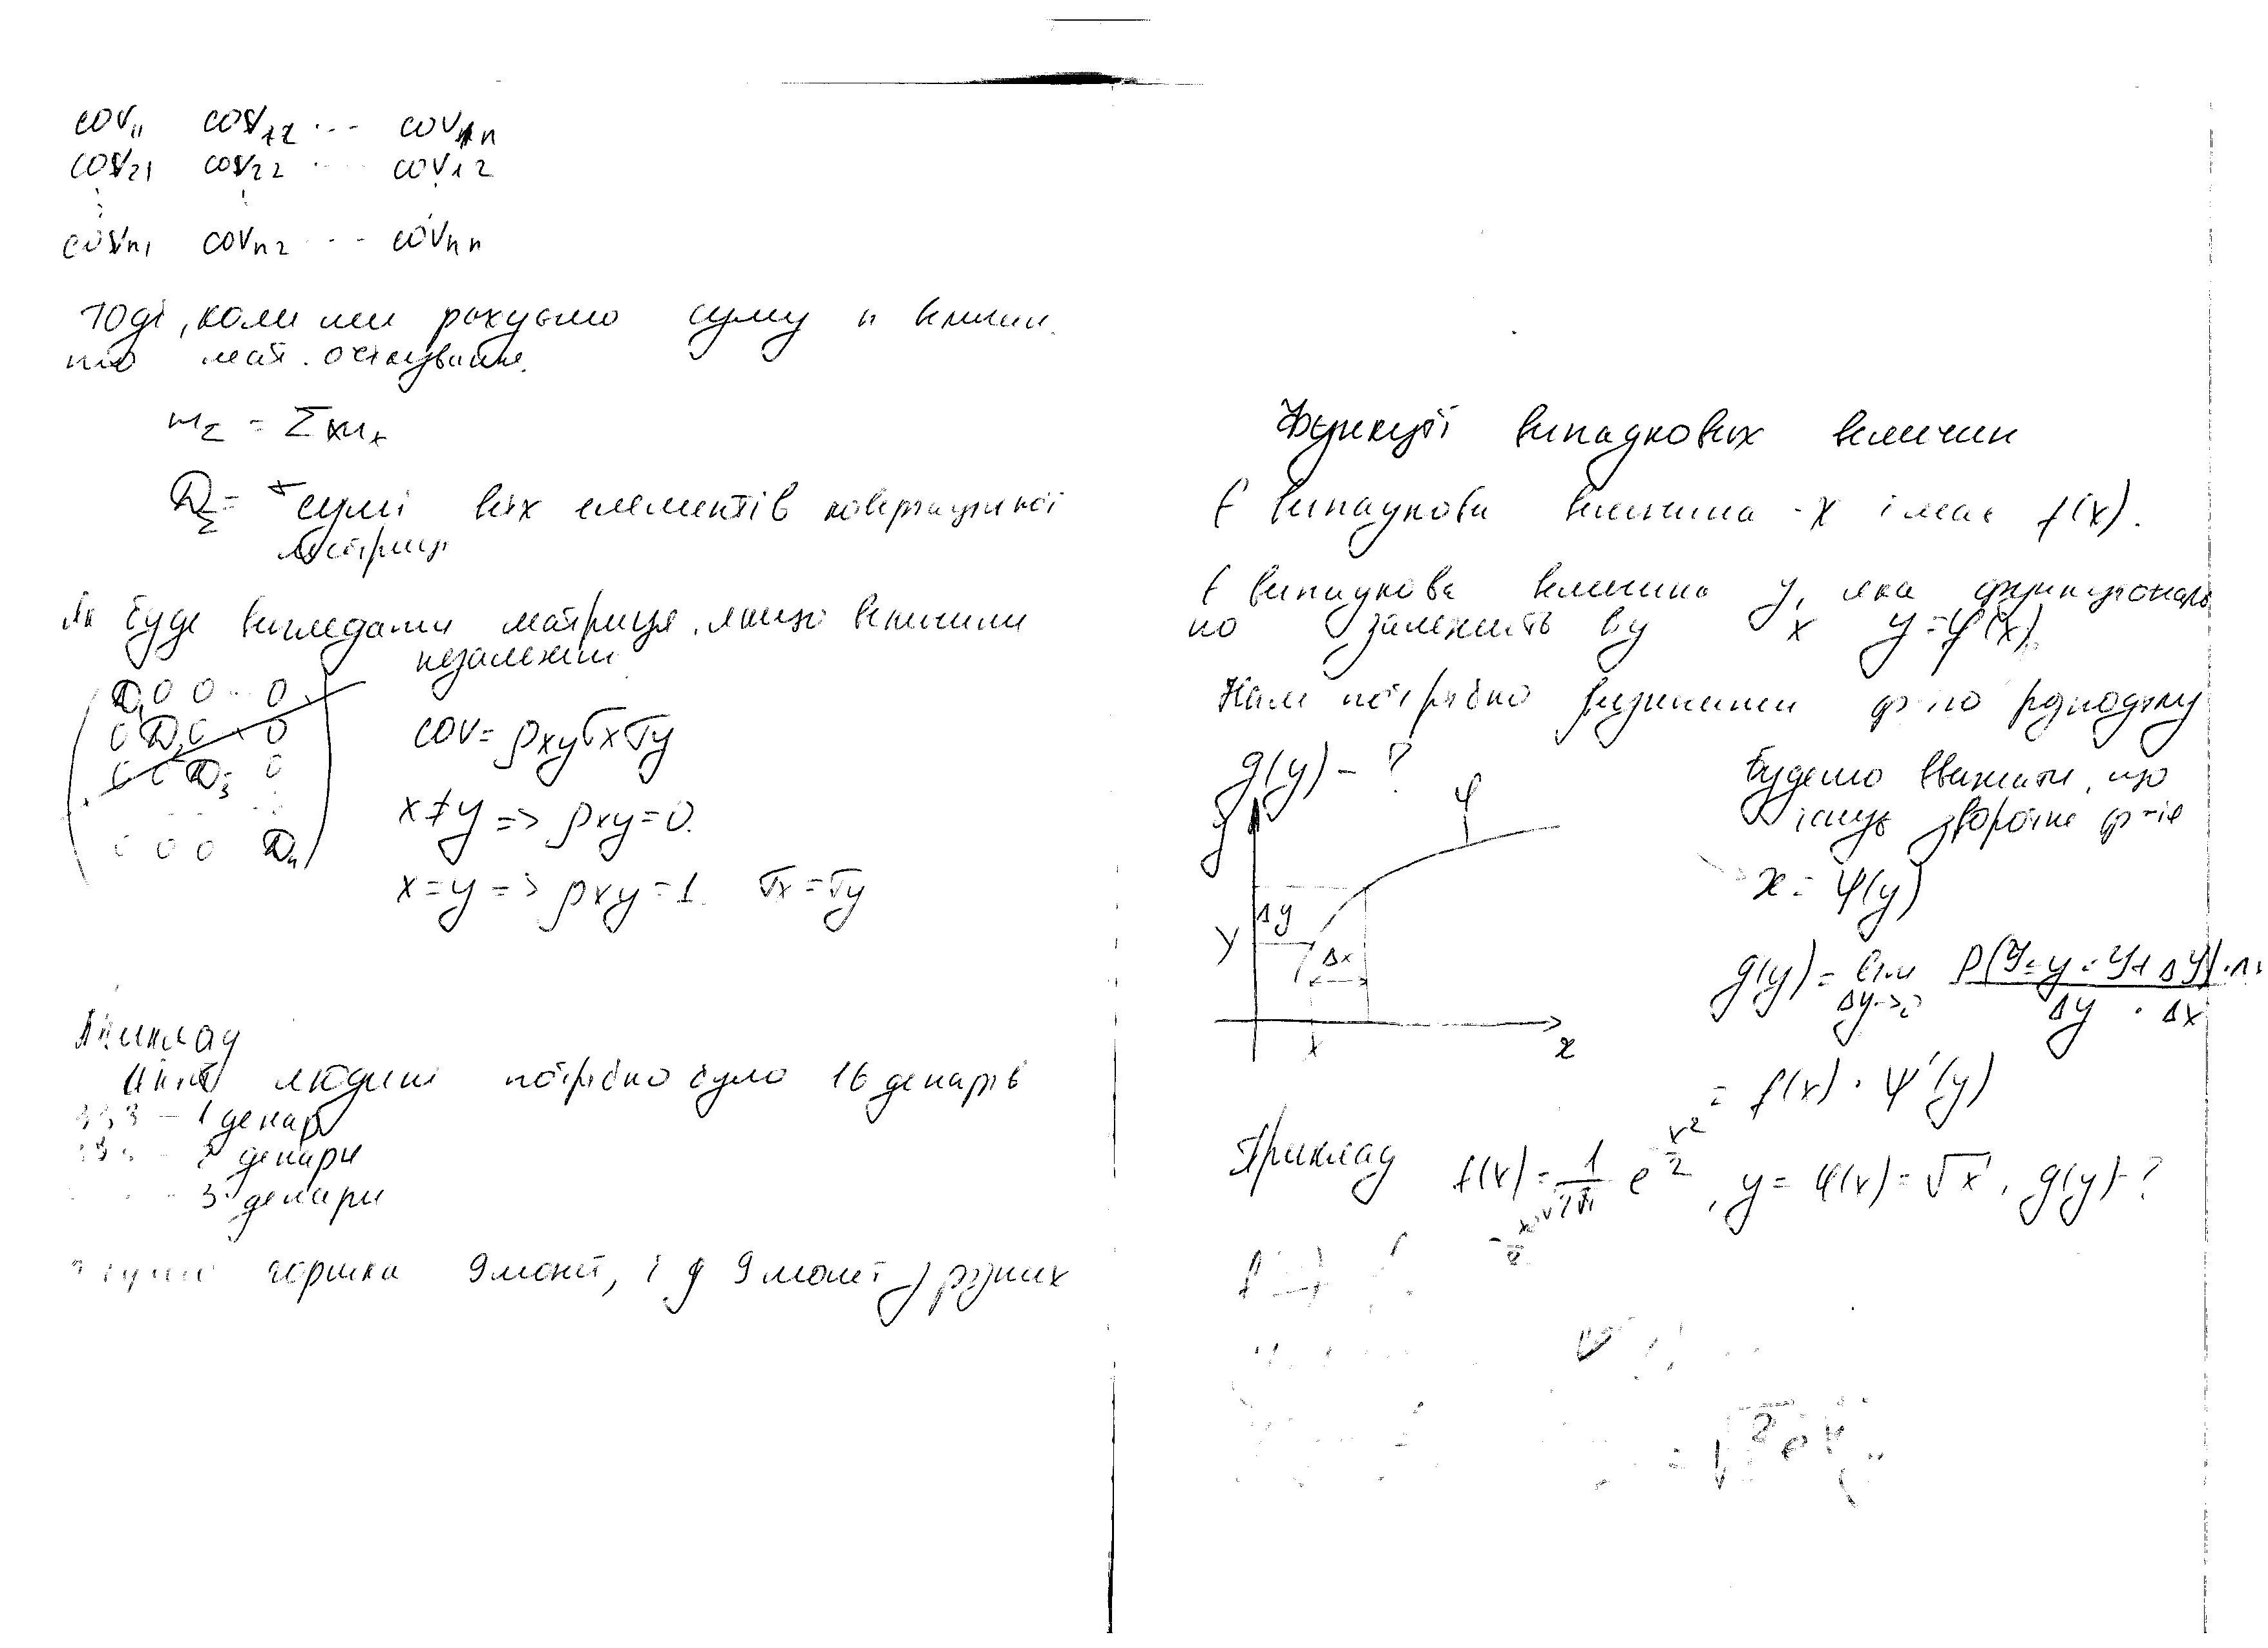 cov11 cov12 ... cov1n
cov21 cov22 ... cov12
covn1 covn2 ... covnn
Тоді, коли ми рахуємо суму n величин.
то мат. очікування.
mΣ = Σ mx
DΣ = сумі всіх елементів коваріаційної
матриці
Як буде виглядати матриця, якщо величини
незалежні
D1 0 0 ... 0
0 D2 0 ... 0
0 0 D3 0
0 0 0 Dn
cov = ρxy σx σy
x ≠ y => ρxy = 0.
x = y => ρxy = 1. σx = σy
Приклад
людині потрібно було 16 денарів
333 – 1 денар
2 денари
3 денари
горшка 9 монет, і з 9 монет з різних
Функції випадкових величин
Є випадкова величина x і має f(x).
Є випадкова величина y, яка функціональ
но залежить від x y = φ(x)
Нам потрібно визначити ф-ію розподілу
g(y) – ?
Будемо вважати, що
існує зворотня ф-ія
x = ψ(y)
y φ
Δy
y
Δx
x x
g(y) = lim Δy->0 P(y < y < y + Δy) · Δx / Δy · Δx
= f(x) · ψ'(y)
Приклад f(x) = 1/√2π e^-x²/2, y = φ(x) = √x, g(y) – ?